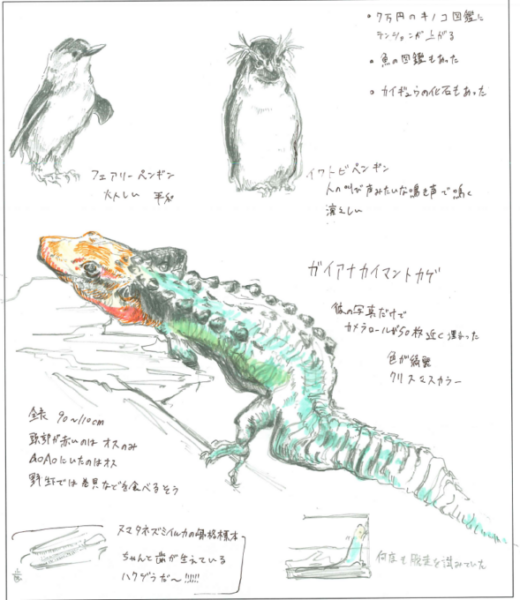 • 7万円のキノコ図鑑に
テンションが上がる
• 魚の図鑑もあった
• カイギュウの化石もあった
フェアリーペンギン
大人しい 平和
イワトビペンギン
人の叫び声みたいな鳴き声で鳴く
激しい
ガイアナカイマントカゲ
彼の写真だけで
カメラロールが50枚近く
色が綺麗
クリスマスカラー
全長 90〜110cm
頭部が赤いのはオスのみ
AOAOにいたのはオス
野生では巻貝などを食べるそう
ヌマタネズミイルカの骨格標本
ちゃんと歯が生えている
ハクジラだ〜!!!!!
何度も脱走を試みていた